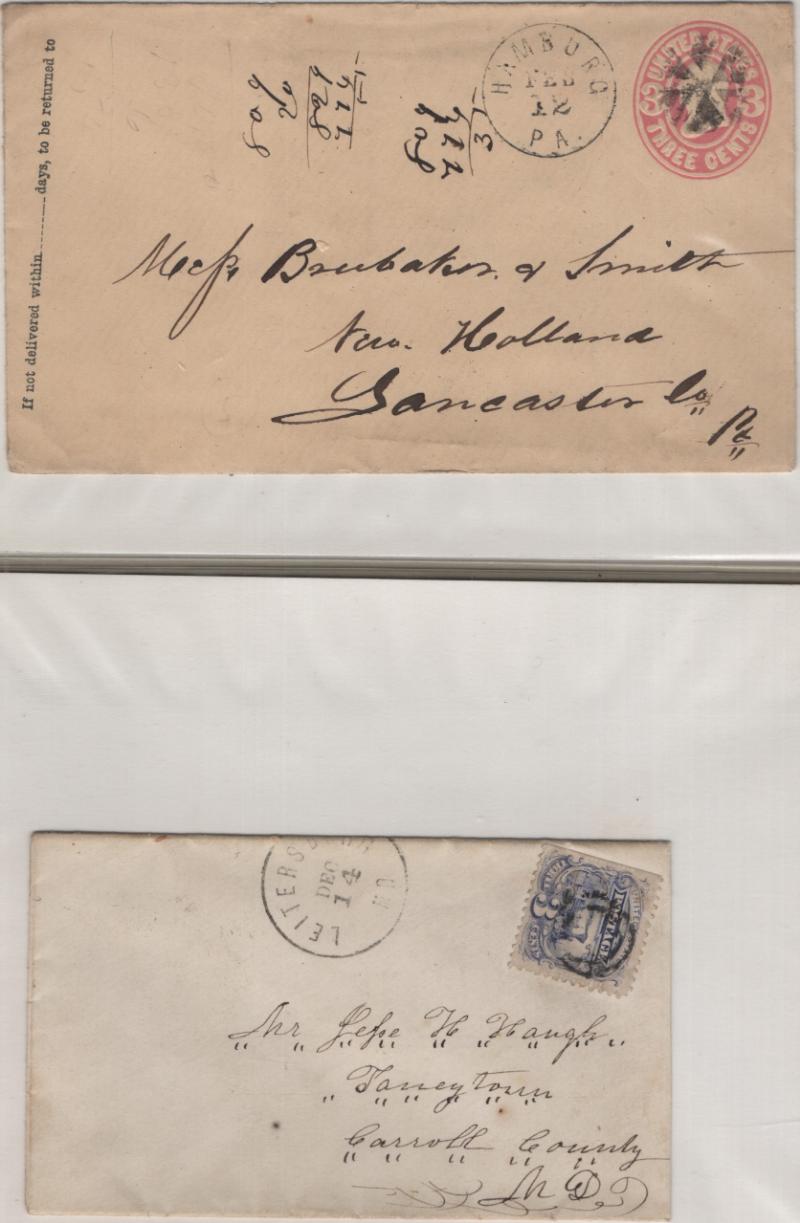 If not delivered within ---------- days, to be returned to
HAMBURG
FEB
12
PA.
UNITED STATES
3 3
THREE CENTS
Mess Brubaker & Smith
New. Holland
Lancaster Co
Pa
LEITERSBURG
DEC
14
MD
UNITED
POSTAGE
3
CENTS
Mr Jesse H Haugh
Taneytown
Carroll County
MD